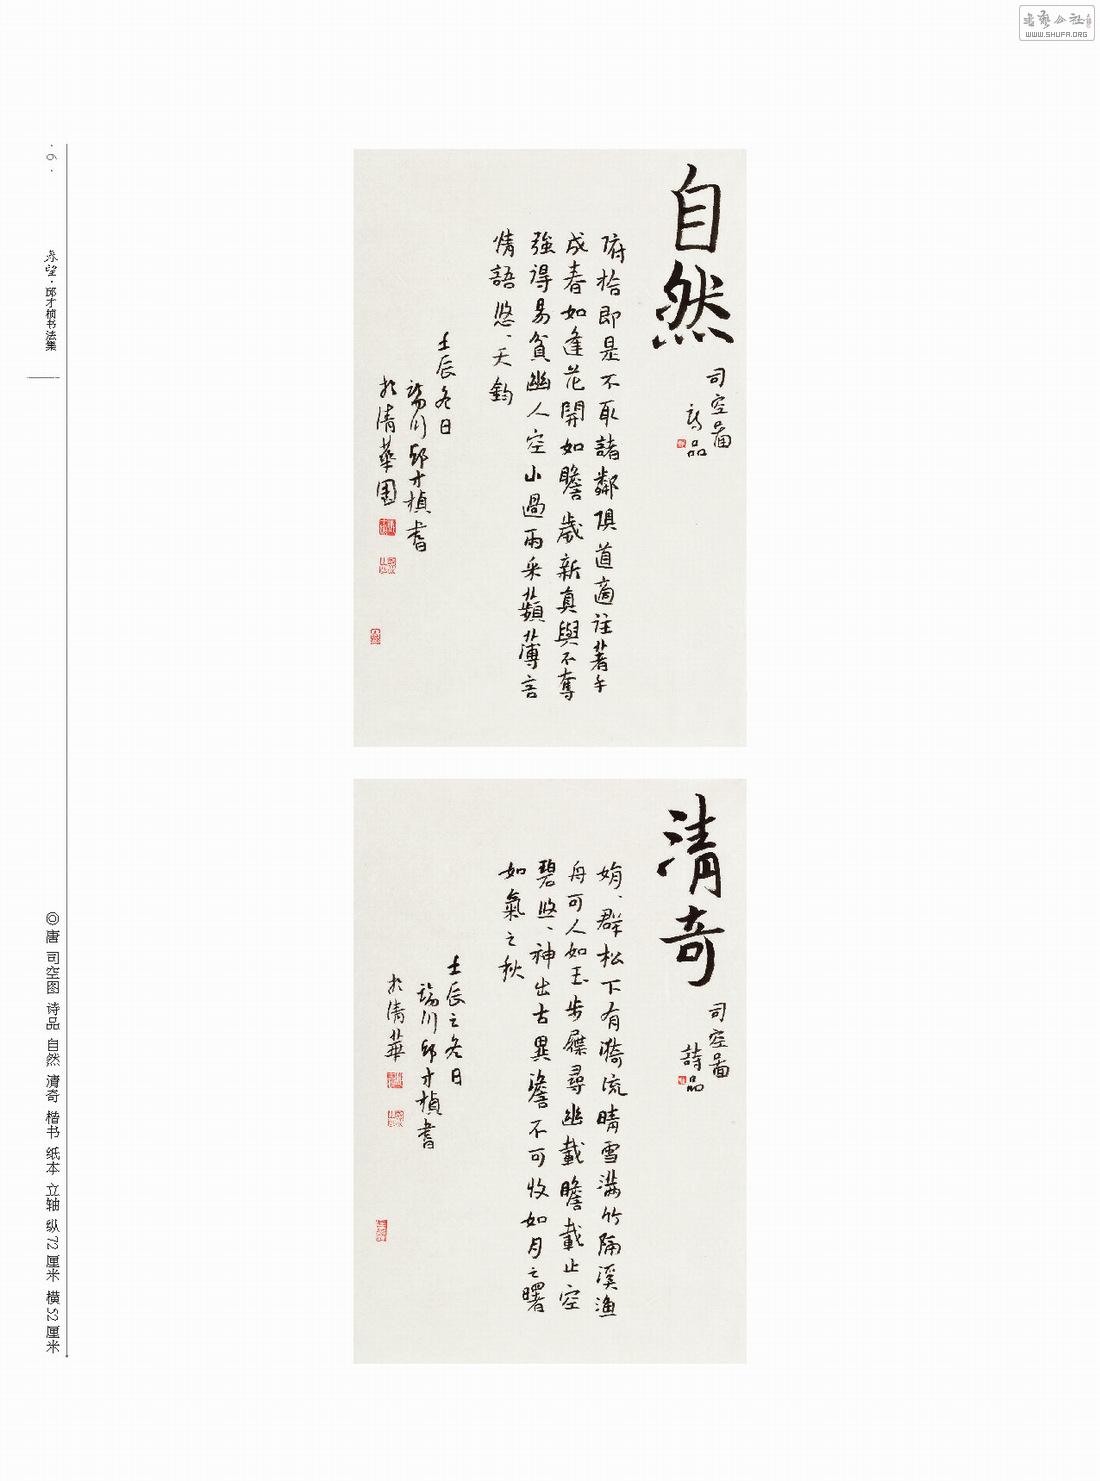 WWW.SHUFA.ORG
· 6 ·
春望·邱才桢书法集
自然
司空圖
詩品
俯拾即是不取諸鄰俱道適往著手
成春如逢花開如瞻歲新真與不奪
強得易貧幽人空山過雨采蘋薄言
情語悠、天鈞
壬辰冬日
瑞川邱才楨書
於清華園
清奇
司空圖
詩品
娟、群松下有漪流晴雪滿竹隔溪漁
舟可人如玉步屧尋幽載瞻載止空
碧悠、神出古異澹不可收如月之曙
如氣之秋
壬辰之冬日
瑞川邱才楨書
於清華
◎唐 司空图 诗品 自然 清奇 楷书 纸本 立轴 纵72厘米 横52厘米